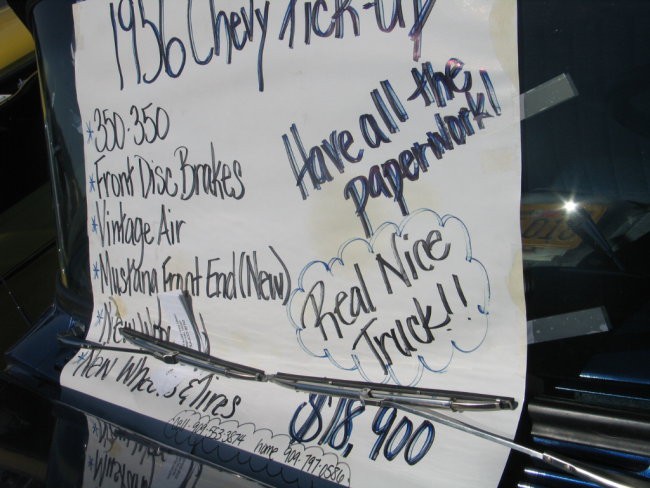 1956 Chevy Pick-up
*350-350
*Front Disc Brakes
*Vintage Air
*Mustang Front End (New)
*New
*New Wheels & Tires
Have all the
paperwork!
Real Nice
Truck!!
$18,900
home 909-797-0586